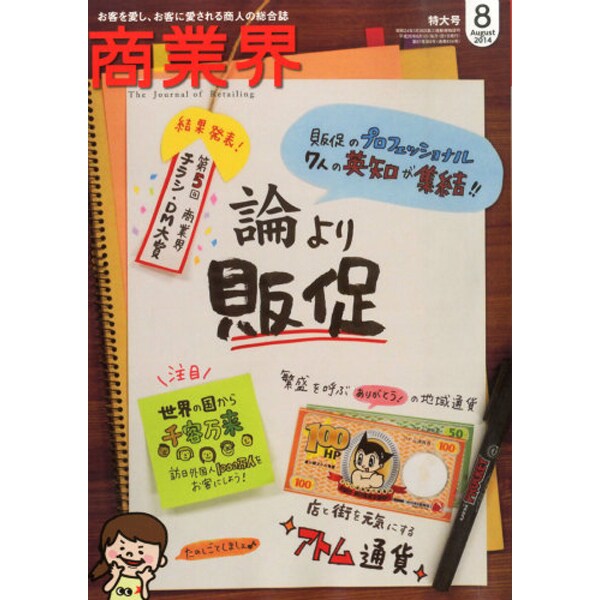 お客を愛し、お客に愛される商人の総合誌
商業界
The Journal of Retailing
特大号
8
August
2014
結果発表!
第5回 商業界
チラシ・DM大賞
販促のプロフェッショナル
7人の英知が集結!!
論より
販促
注目
世界の国から
千客万来
訪日外国人1000万人を
お客にしよう!
繁盛を呼ぶありがとう!の地域通貨
50
100
HP
100
100
店と街を元気にする
アトム通貨
たのしごとしましょ